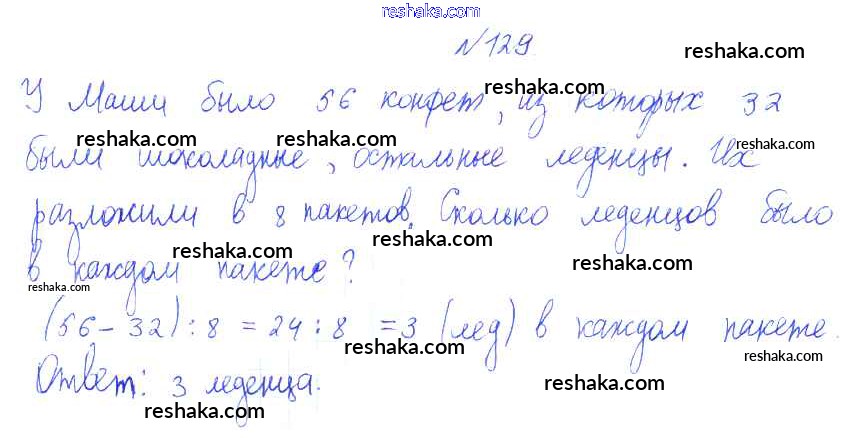 reshaka.com
№129 reshaka.com
У Маши было 56 конфет, из которых 32
reshaka.com
reshaka.com reshaka.com reshaka.com
были шоколадные, остальные леденцы. Их
разложили в 8 пакетов. Сколько леденцов было
reshaka.com reshaka.com reshaka.com
в каждом пакете?
reshaka.com
(56-32):8 = 24:8 =3 (лед) в каждом пакете.
reshaka.com reshaka.com
Ответ: 3 леденца.
reshaka.com reshaka.com